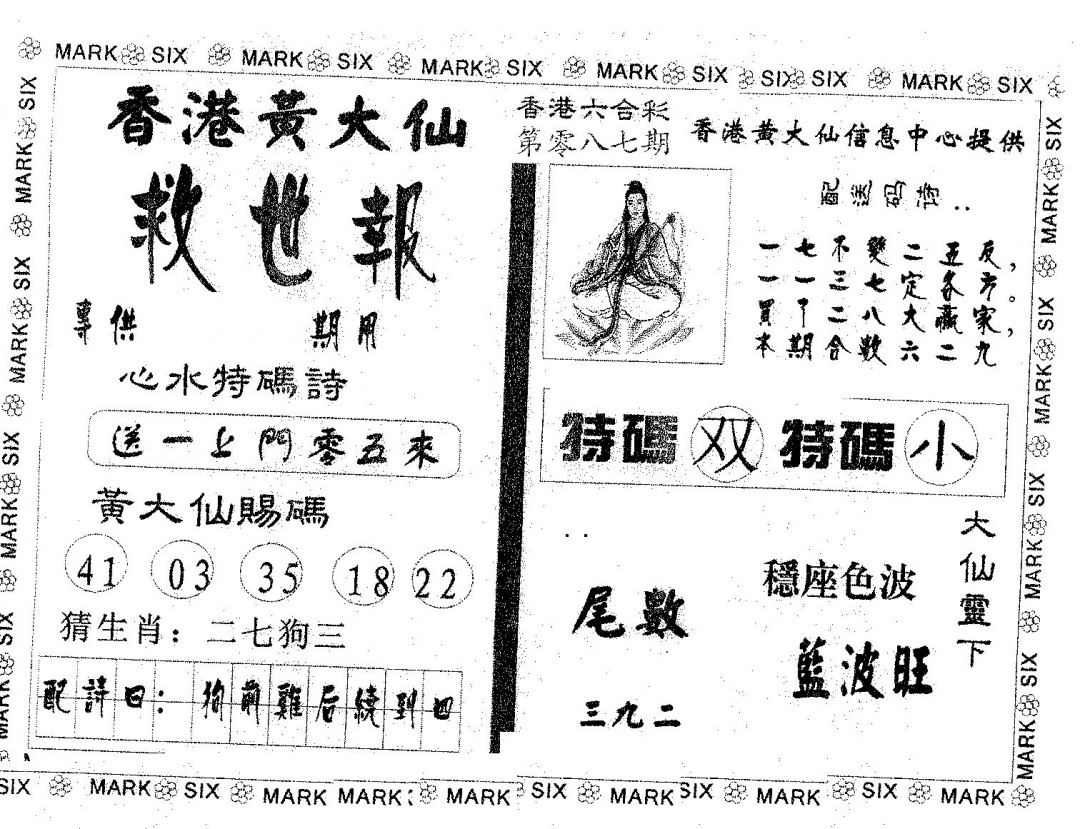 MARK SIX MARK SIX MARK SIX MARK SIX SIX SIX MARK SIX
香港黃大仙
救世報
專供 期用
心水特碼詩
送一上門零五來
黃大仙賜碼
41 03 35 18 22
猜生肖：二七狗三
配詩曰：狗前雞后繞到四
香港六合彩
第零八七期
香港黄大仙信息中心提供
配送码诗..
一七不變二五反，
一一三七定各方。
買了二八大贏家，
本期合數六二九
特碼双 特碼小
大仙靈下
穩座色波
藍波旺
尾數
三九二
MARK SIX MARK SIX MARK SIX MARK SIX
MARK SIX MARK SIX MARK SIX MARK SIX
SIX MARK SIX MARK MARK MARK SIX MARK SIX MARK SIX MARK